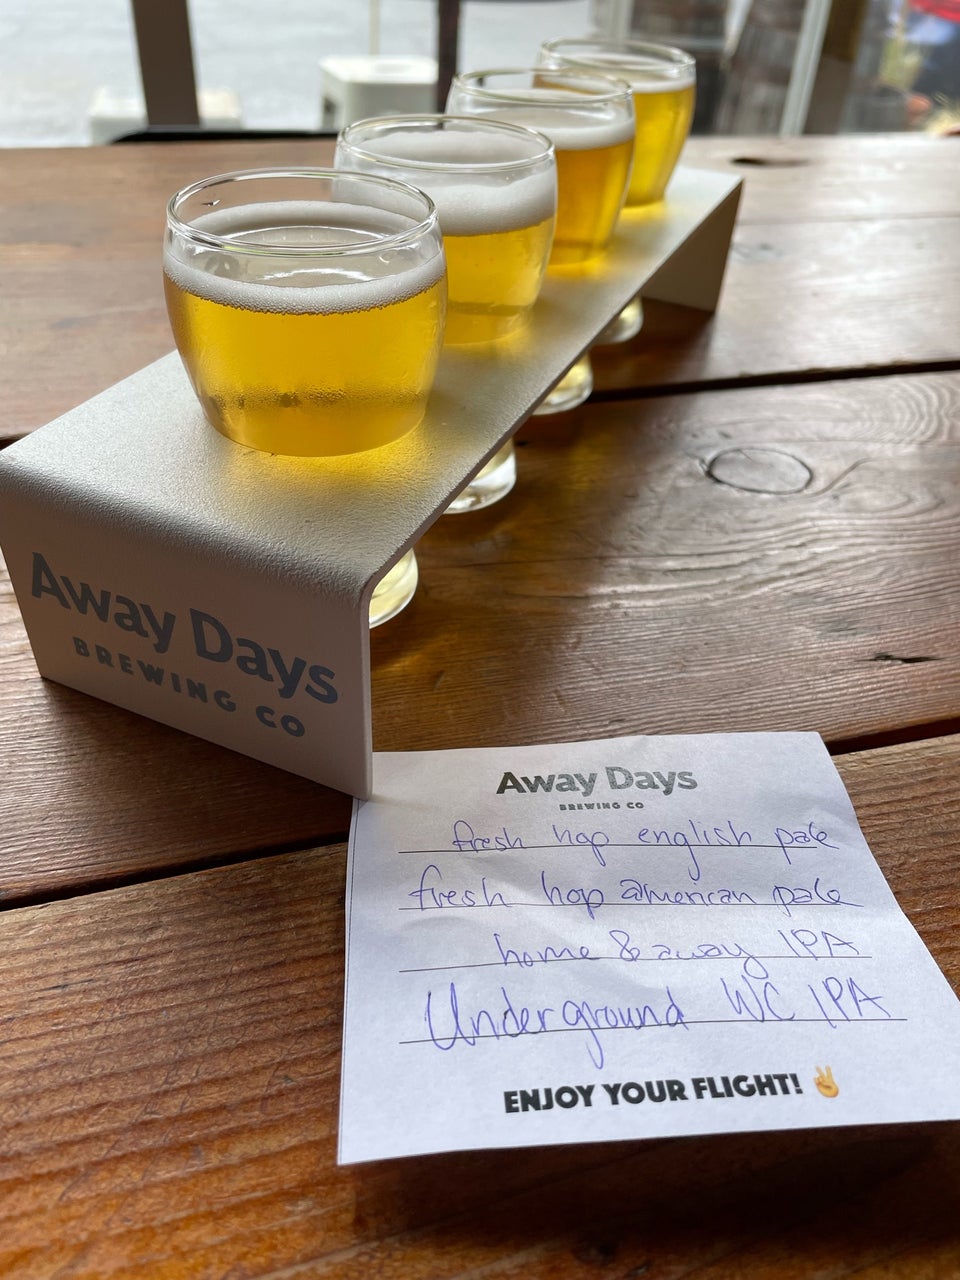 Away Days
BREWING CO
Away Days
BREWING CO
fresh hop english pale
fresh hop american pale
home & away IPA
Underground WC IPA
ENJOY YOUR FLIGHT! ✌️